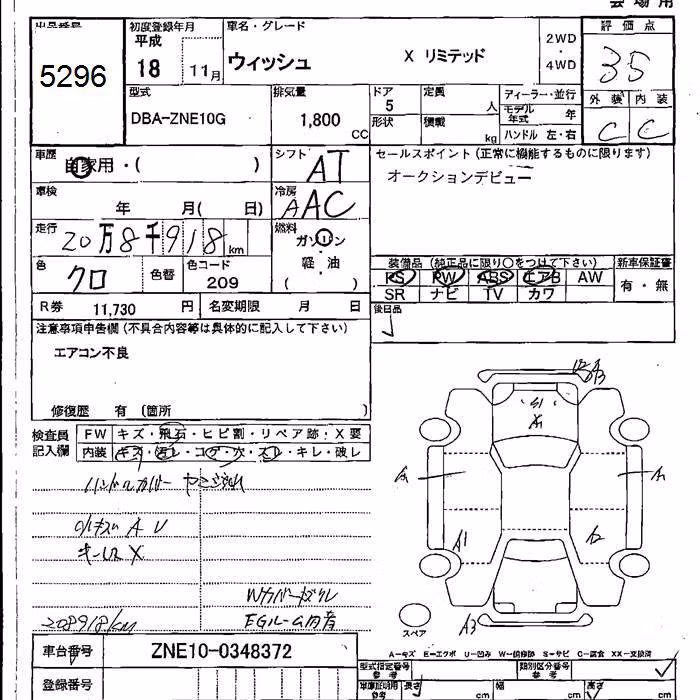 会場用
出品番号
5296
初度登録年月
平成
18 11月
車名・グレード
ウィッシュ X リミテッド
2WD
・
4WD
評価点
3.5
型式
DBA-ZNE10G
排気量
1,800 CC
ドア
5
形状
定員 人
積載 kg
ディーラー・並行
モデル年式 年
ハンドル 左・右
外装 内装
C C
車歴
自家用・( )
シフト
AT
車検
年 月( 日)
冷房
AAC
走行
20万8千918 km
燃料
ガソリン
軽・油
( )
色
クロ
色替
色コード
209
R券 11,730 円 名変期限 月 日
セールスポイント (正常に機能するものに限ります)
オークションデビュー
装備品 (純正品に限り○をつけて下さい)
新車保証書
PS PW ABS エアB AW
SR ナビ TV カワ
有・無
後日品
注意事項申告欄 (不具合内容等は具体的に記入して下さい)
エアコン不良
修復歴 有 (箇所 )
検査員記入欄
FW キズ・飛石・ヒビ割・リペア跡・X要
内装 キズ・汚レ・コゲ・穴・スレ・キレ・破レ
ハンドルカバー
キーレスX
208918km
EGルーム内音
S1
X1
A1
A1
A2
A3
スペア
A-キズ E-エクボ U-凹み W-補修跡 S-サビ C-腐食 XX-交換済
車台番号 ZNE10-0348372
登録番号
型式指定番号 類別区分番号
参考
車庫証明用 長さ cm cm 高さ cm